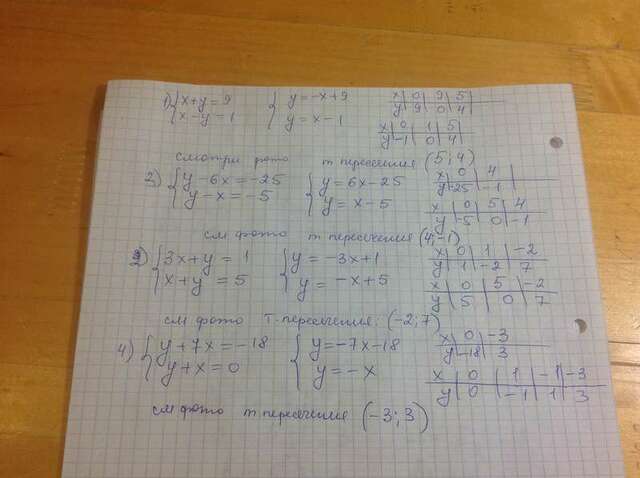 1) { x+y=9 { y=-x+9 x | 0 | 9 | 5
x-y=1 y=x-1 y | 9 | 0 | 4
x | 0 | 1 | 5
y | -1 | 0 | 4
смотри фото т пересечения (5; 4)
3) { y-6x=-25 { y=6x-25 x | 0 | 4
y-x=-5 y=x-5 y | -25 | -1
x | 0 | 5 | 4
y | -5 | 0 | -1
см фото т пересечения (4;-1)
2) { 3x+y=1 { y=-3x+1 x | 0 | 1 | -2
x+y=5 y=-x+5 y | 1 | -2 | 7
x | 0 | 5 | -2
y | 5 | 0 | 7
см фото т. пересечения: (-2; 7)
4) { y+7x=-18 { y=-7x-18 x | 0 | -3
y+x=0 y=-x y | -18 | 3
x | 0 | 1 | -1 | -3
y | 0 | -1 | 1 | 3
см фото т пересечения (-3; 3)